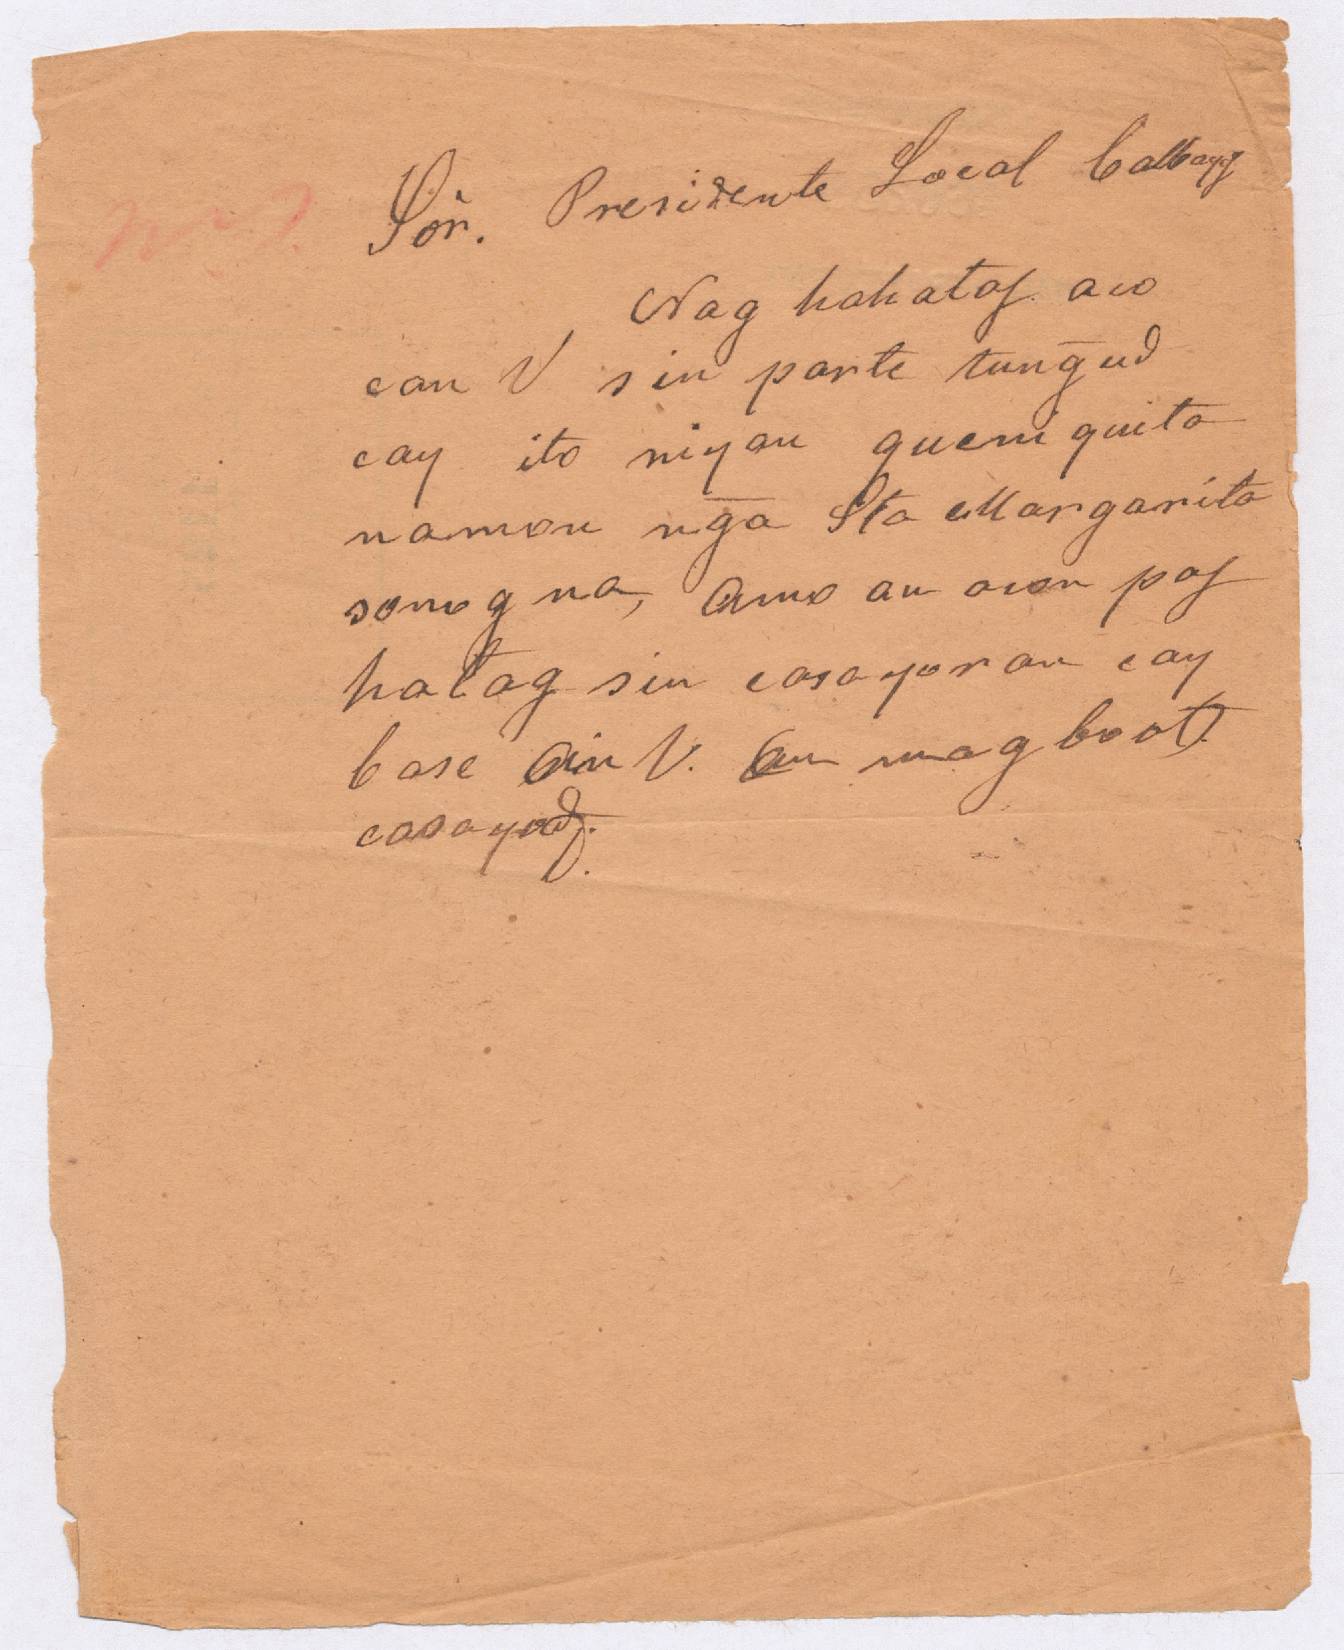 Sor. Presidente Local Calbayog
Nag hahatag aco
can V sin parte tungud
cay ito niyan queni quita
namon nga Sta Margarita
sonog na, Amo an acon pag
hatag sin casayoran cay
base Ain V. An magboot
casayod.